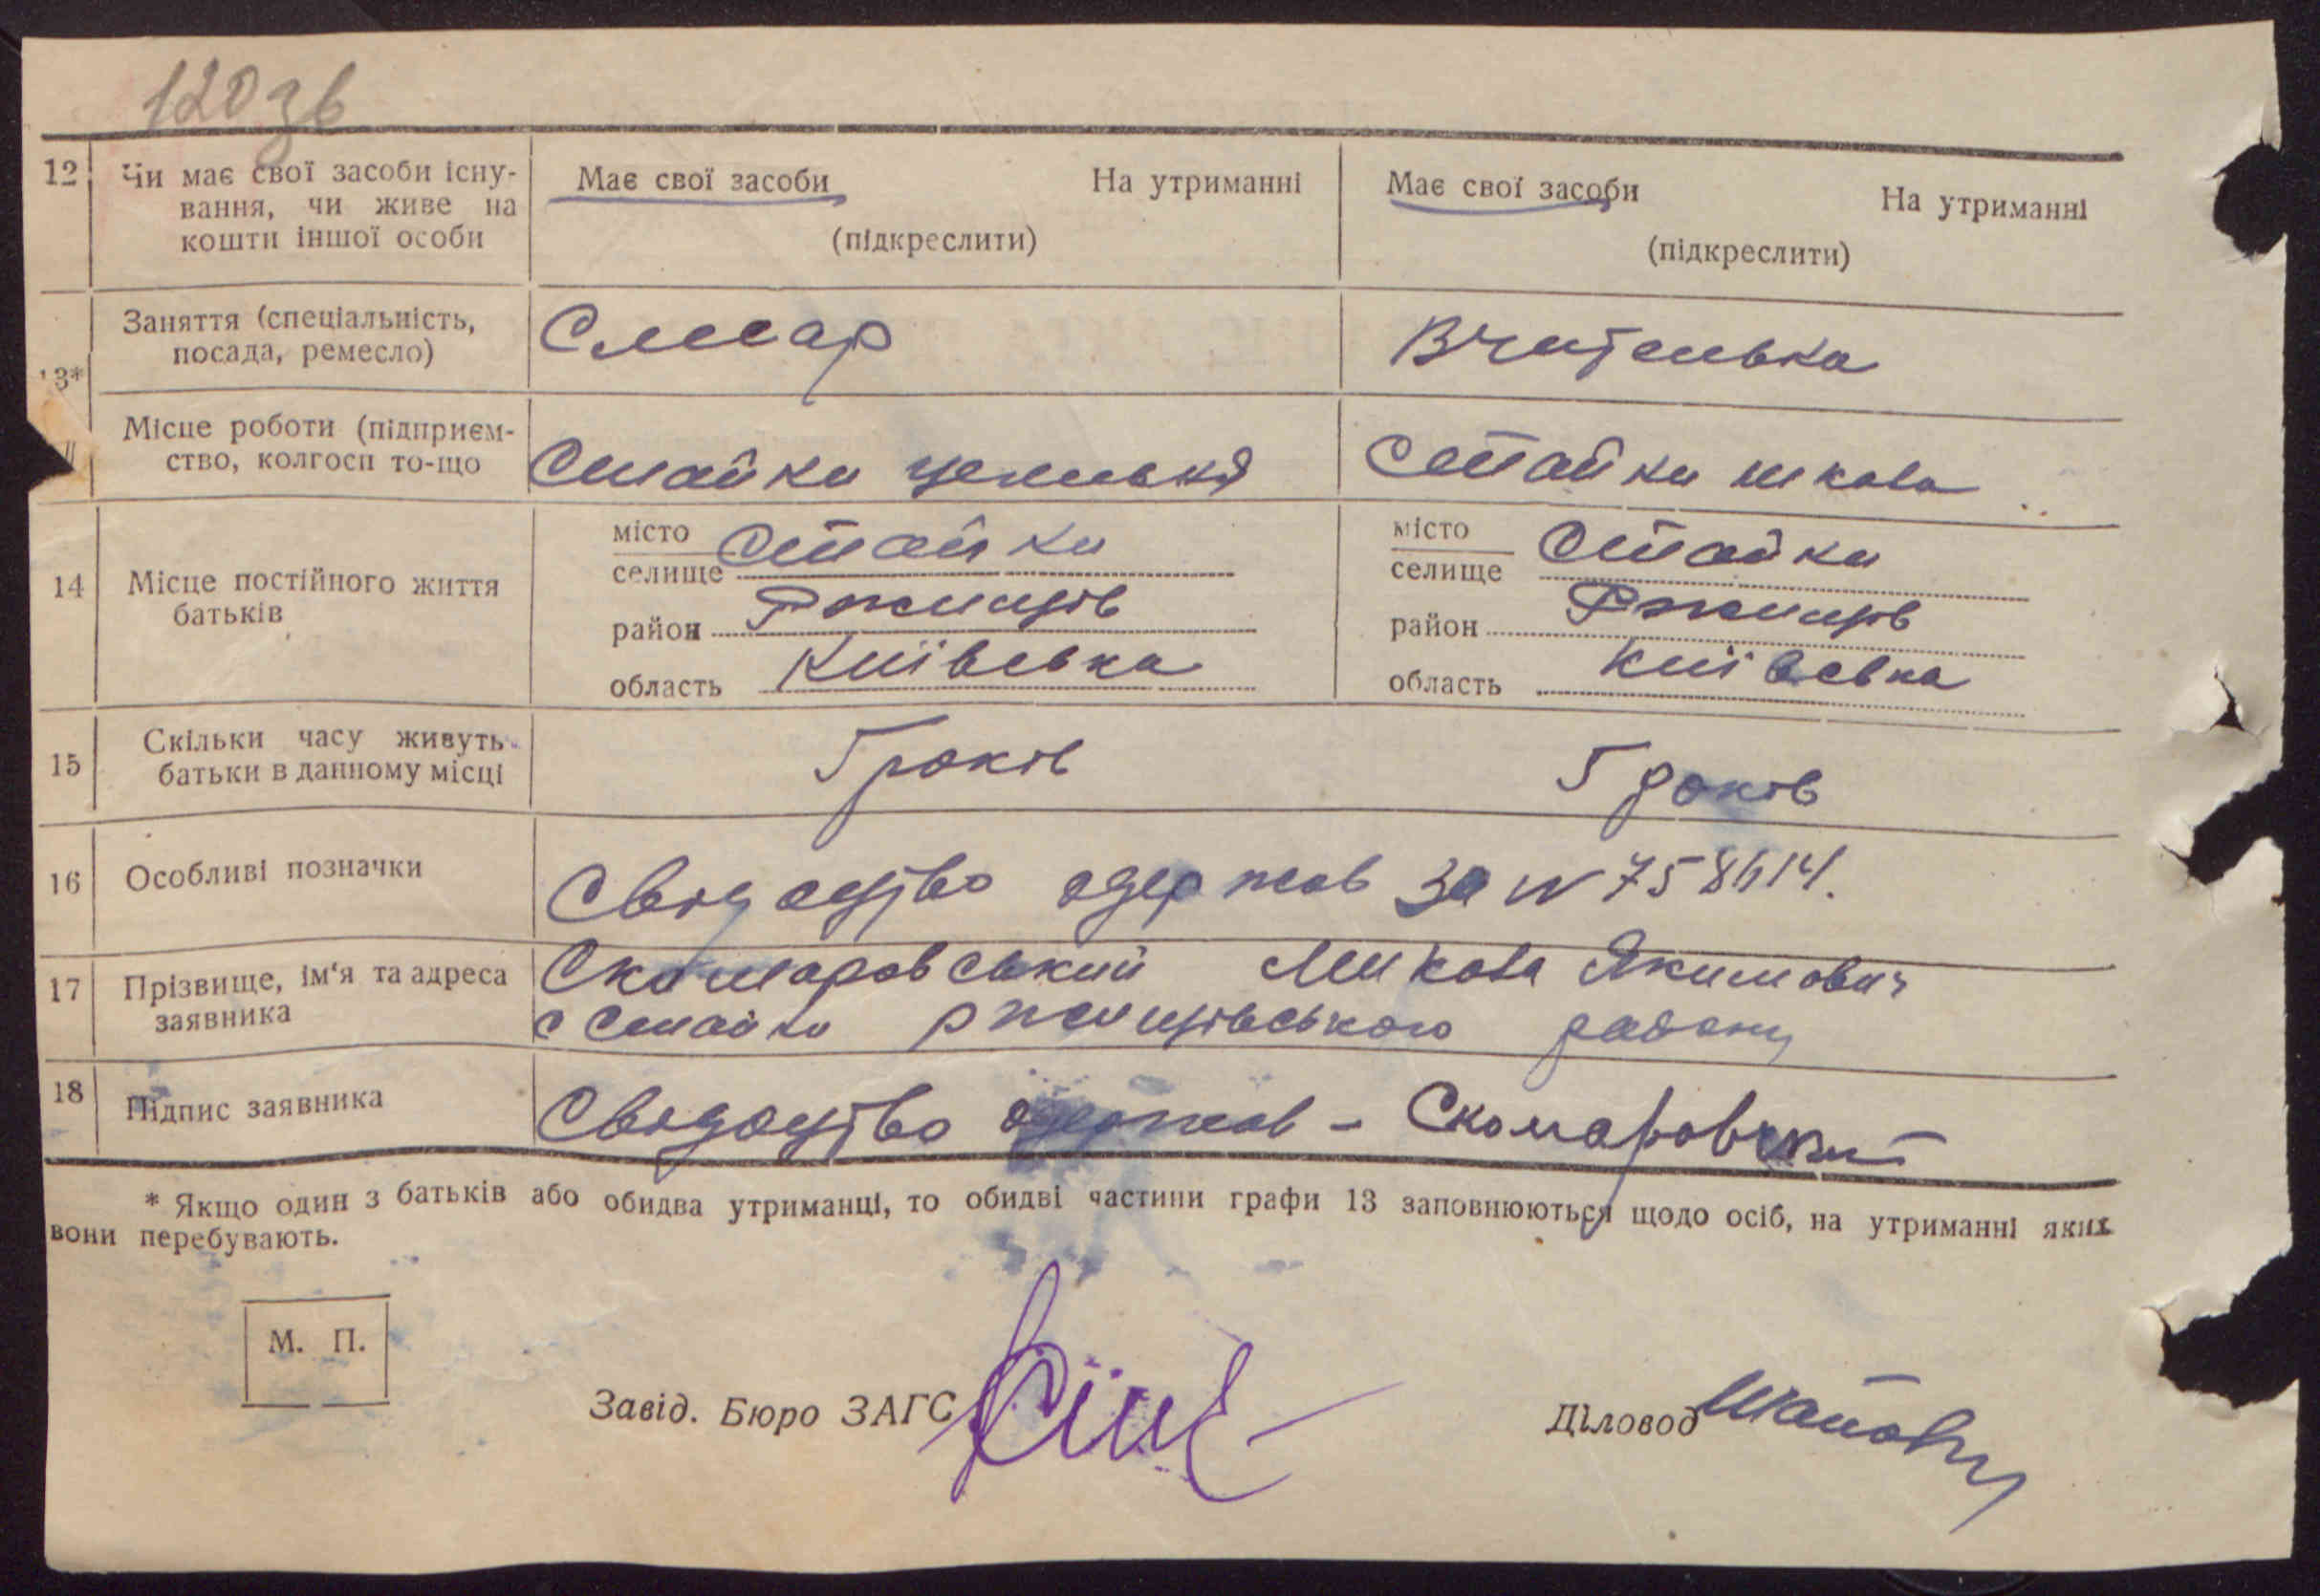 120 зв
12 Чи має свої засоби існу-
вання, чи живе на
кошти іншої особи
Має свої засоби На утриманні
(підкреслити)
Має свої засоби На утриманні
(підкреслити)
13*
Заняття (спеціальність,
посада, ремесло)
Слесар
Вчителька
Місце роботи (підприєм-
ство, колгосп то-що
Стайки цегельня
Стайки школа
14 Місце постійного життя
батьків
місто
селище Стайки
район Ржищів
область Київська
місто
селище Стайки
район Ржищів
область Київська
15 Скільки часу живуть
батьки в данному місці
5 років
5 років
16 Особливі позначки
Свідоцтво одержав за N 758614.
17 Прізвище, ім‘я та адреса
заявника
Скомаровський Микола Якимович
с Стайки Ржищівського району
18 Підпис заявника
Свідоцтво одержав - Скомаровский
* Якщо один з батьків або обидва утриманці, то обидві частини графи 13 заповнюються щодо осіб, на утриманні яких
вони перебувають.
М. П.
Завід. Бюро ЗАГС
Діловод